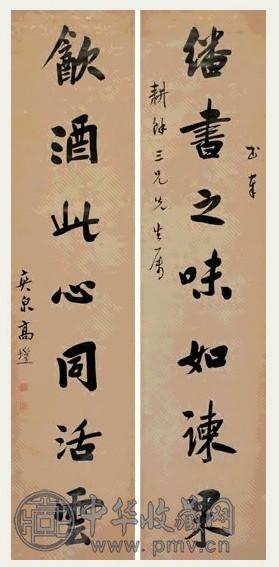 書奉
繙書之味如諫果
耕餘三兄先生属
㱃酒此心同活雲
爽泉高塏
中华收藏网
www.pmv.cn